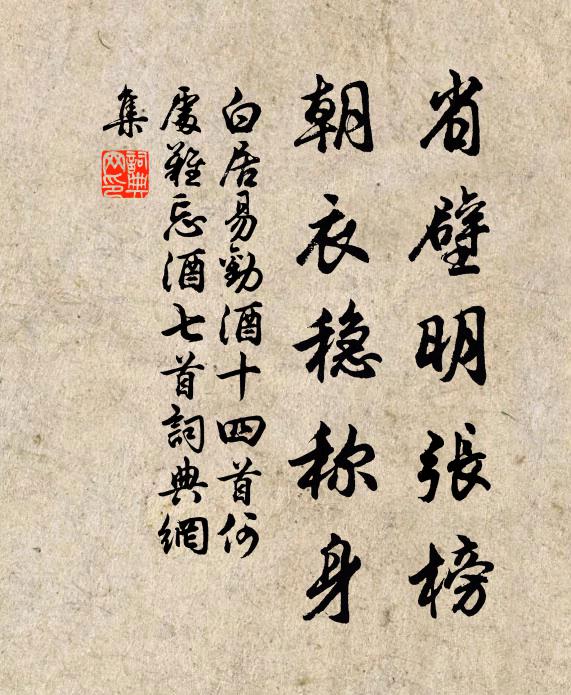 省壁明張榜
朝衣稳称身
白居易勸酒十四首何
處難忘酒七首詞典網
集
詞典
网印